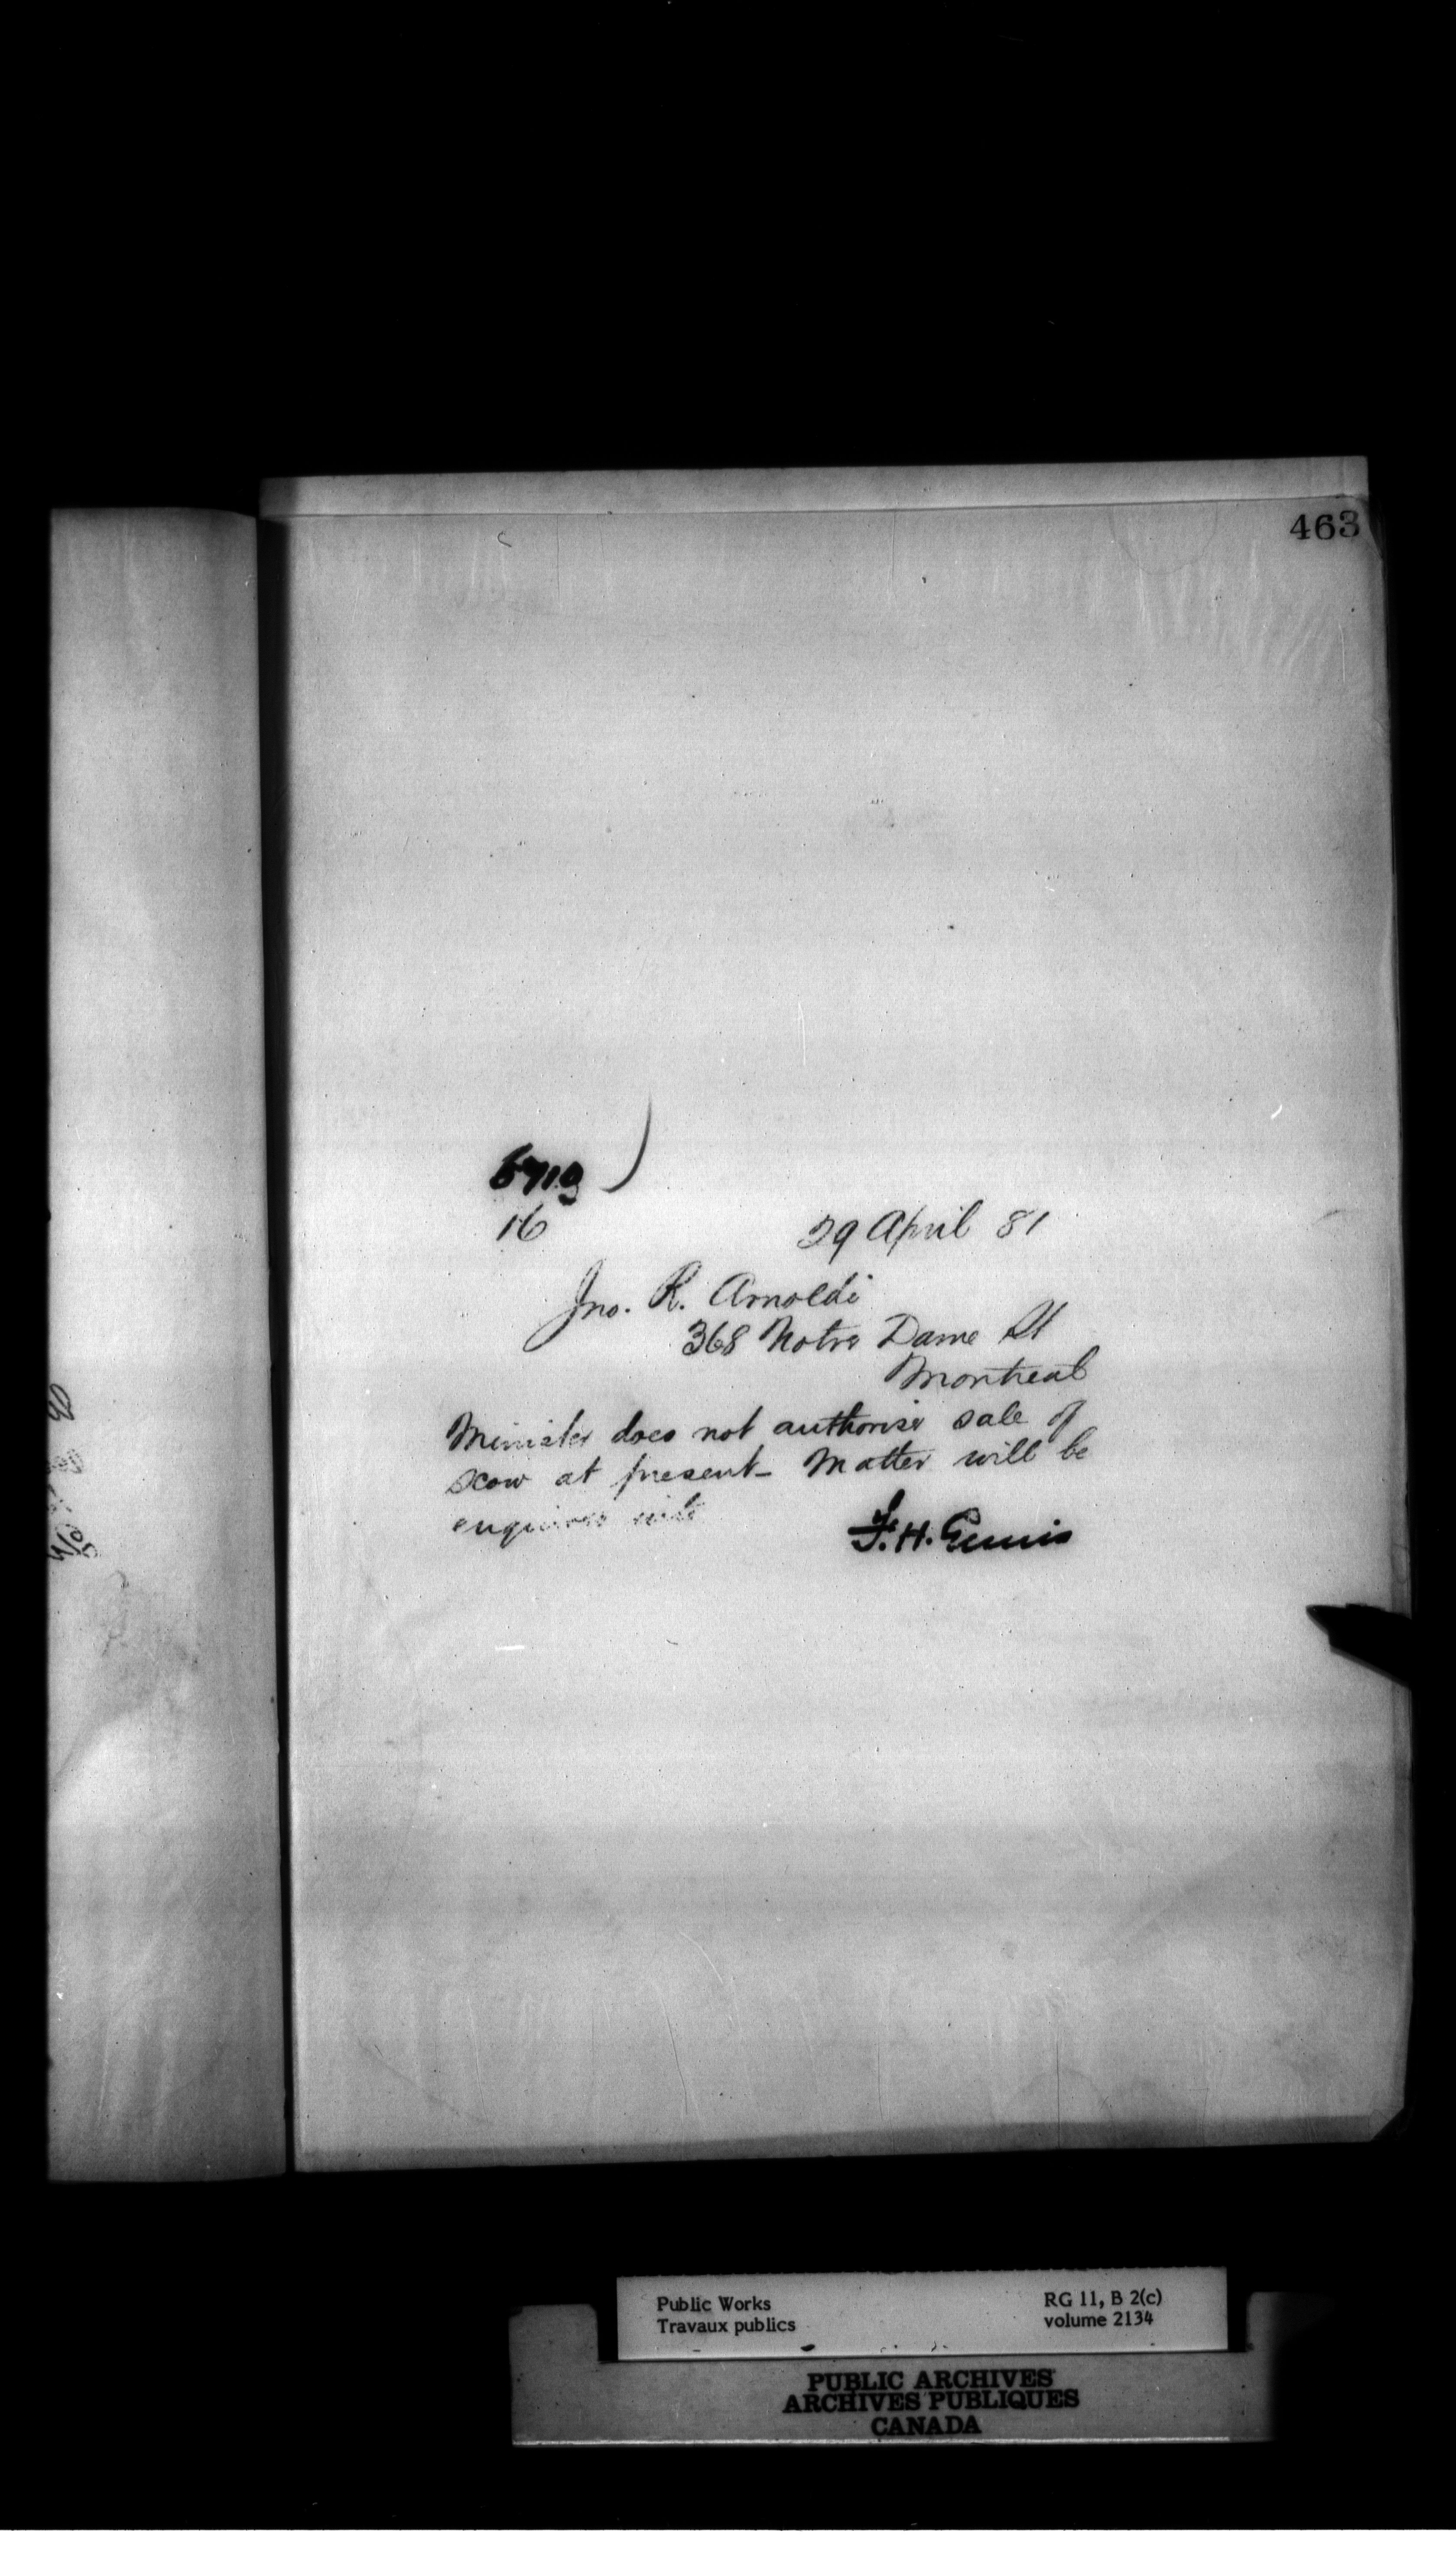 463
16
29 April 81
Jno. R. Arnoldi
368 Notre Dame St
Montreal
Minister does not authorise sale of
scow at present_ Matter will be
enquired into
F. H. Ennis
Public Works
Travaux publics
RG 11, B 2(c)
volume 2134
PUBLIC ARCHIVES
ARCHIVES PUBLIQUES
CANADA